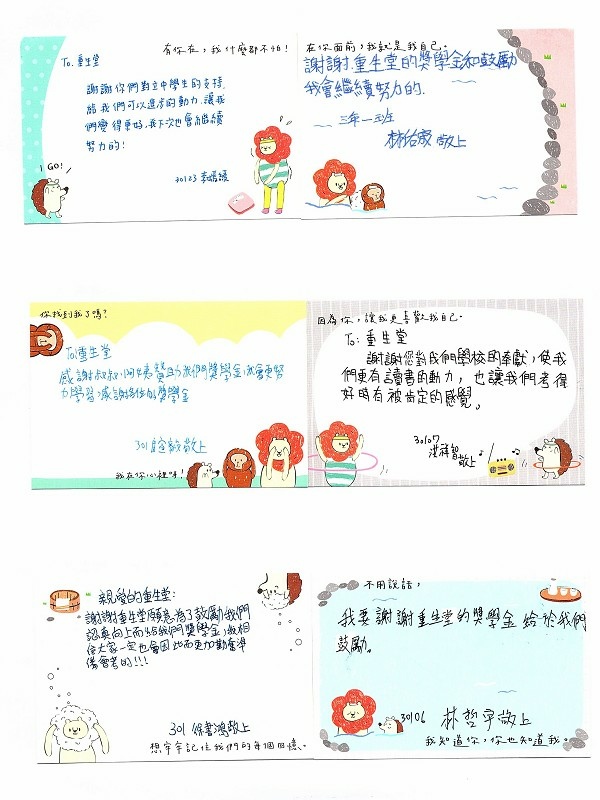 有你在，我什麼都不怕！
To. 重生堂
謝謝你們對立中學生的支持，
給我們可以進步的動力，讓我
們變得更好，我下次也會繼續
努力的！
I GO!
30123 李
在你面前，我就是我自己。
謝謝重生堂的獎學金和鼓勵
我會繼續努力的.
三年一班
林佑宸 敬上
你找到我了嗎？
To重生堂
感謝叔叔、阿姨贊助我們獎學金，我會更努
力學習，感謝各位的獎學金
301 敬上
我在你心裡呀！
因為你，讓我更喜歡我自己。
To: 重生堂
謝謝您對我們學校的奉獻，使我
們更有讀書的動力，也讓我們考得
好時有被肯定的感覺。
30107
洪 智
敬上
親愛的重生堂：
謝謝重生堂願意為了鼓勵我們
認真向上而給我們獎學金，我相
信大家一定也會因此而更加勤奮準
備會考的!!!
301 徐書鴻敬上
想牢牢記住我們的每個回憶。
不用說話，
我要謝謝重生堂的獎學金給於我們
鼓勵。
30106 林哲宇敬上
我知道你，你也知道我。